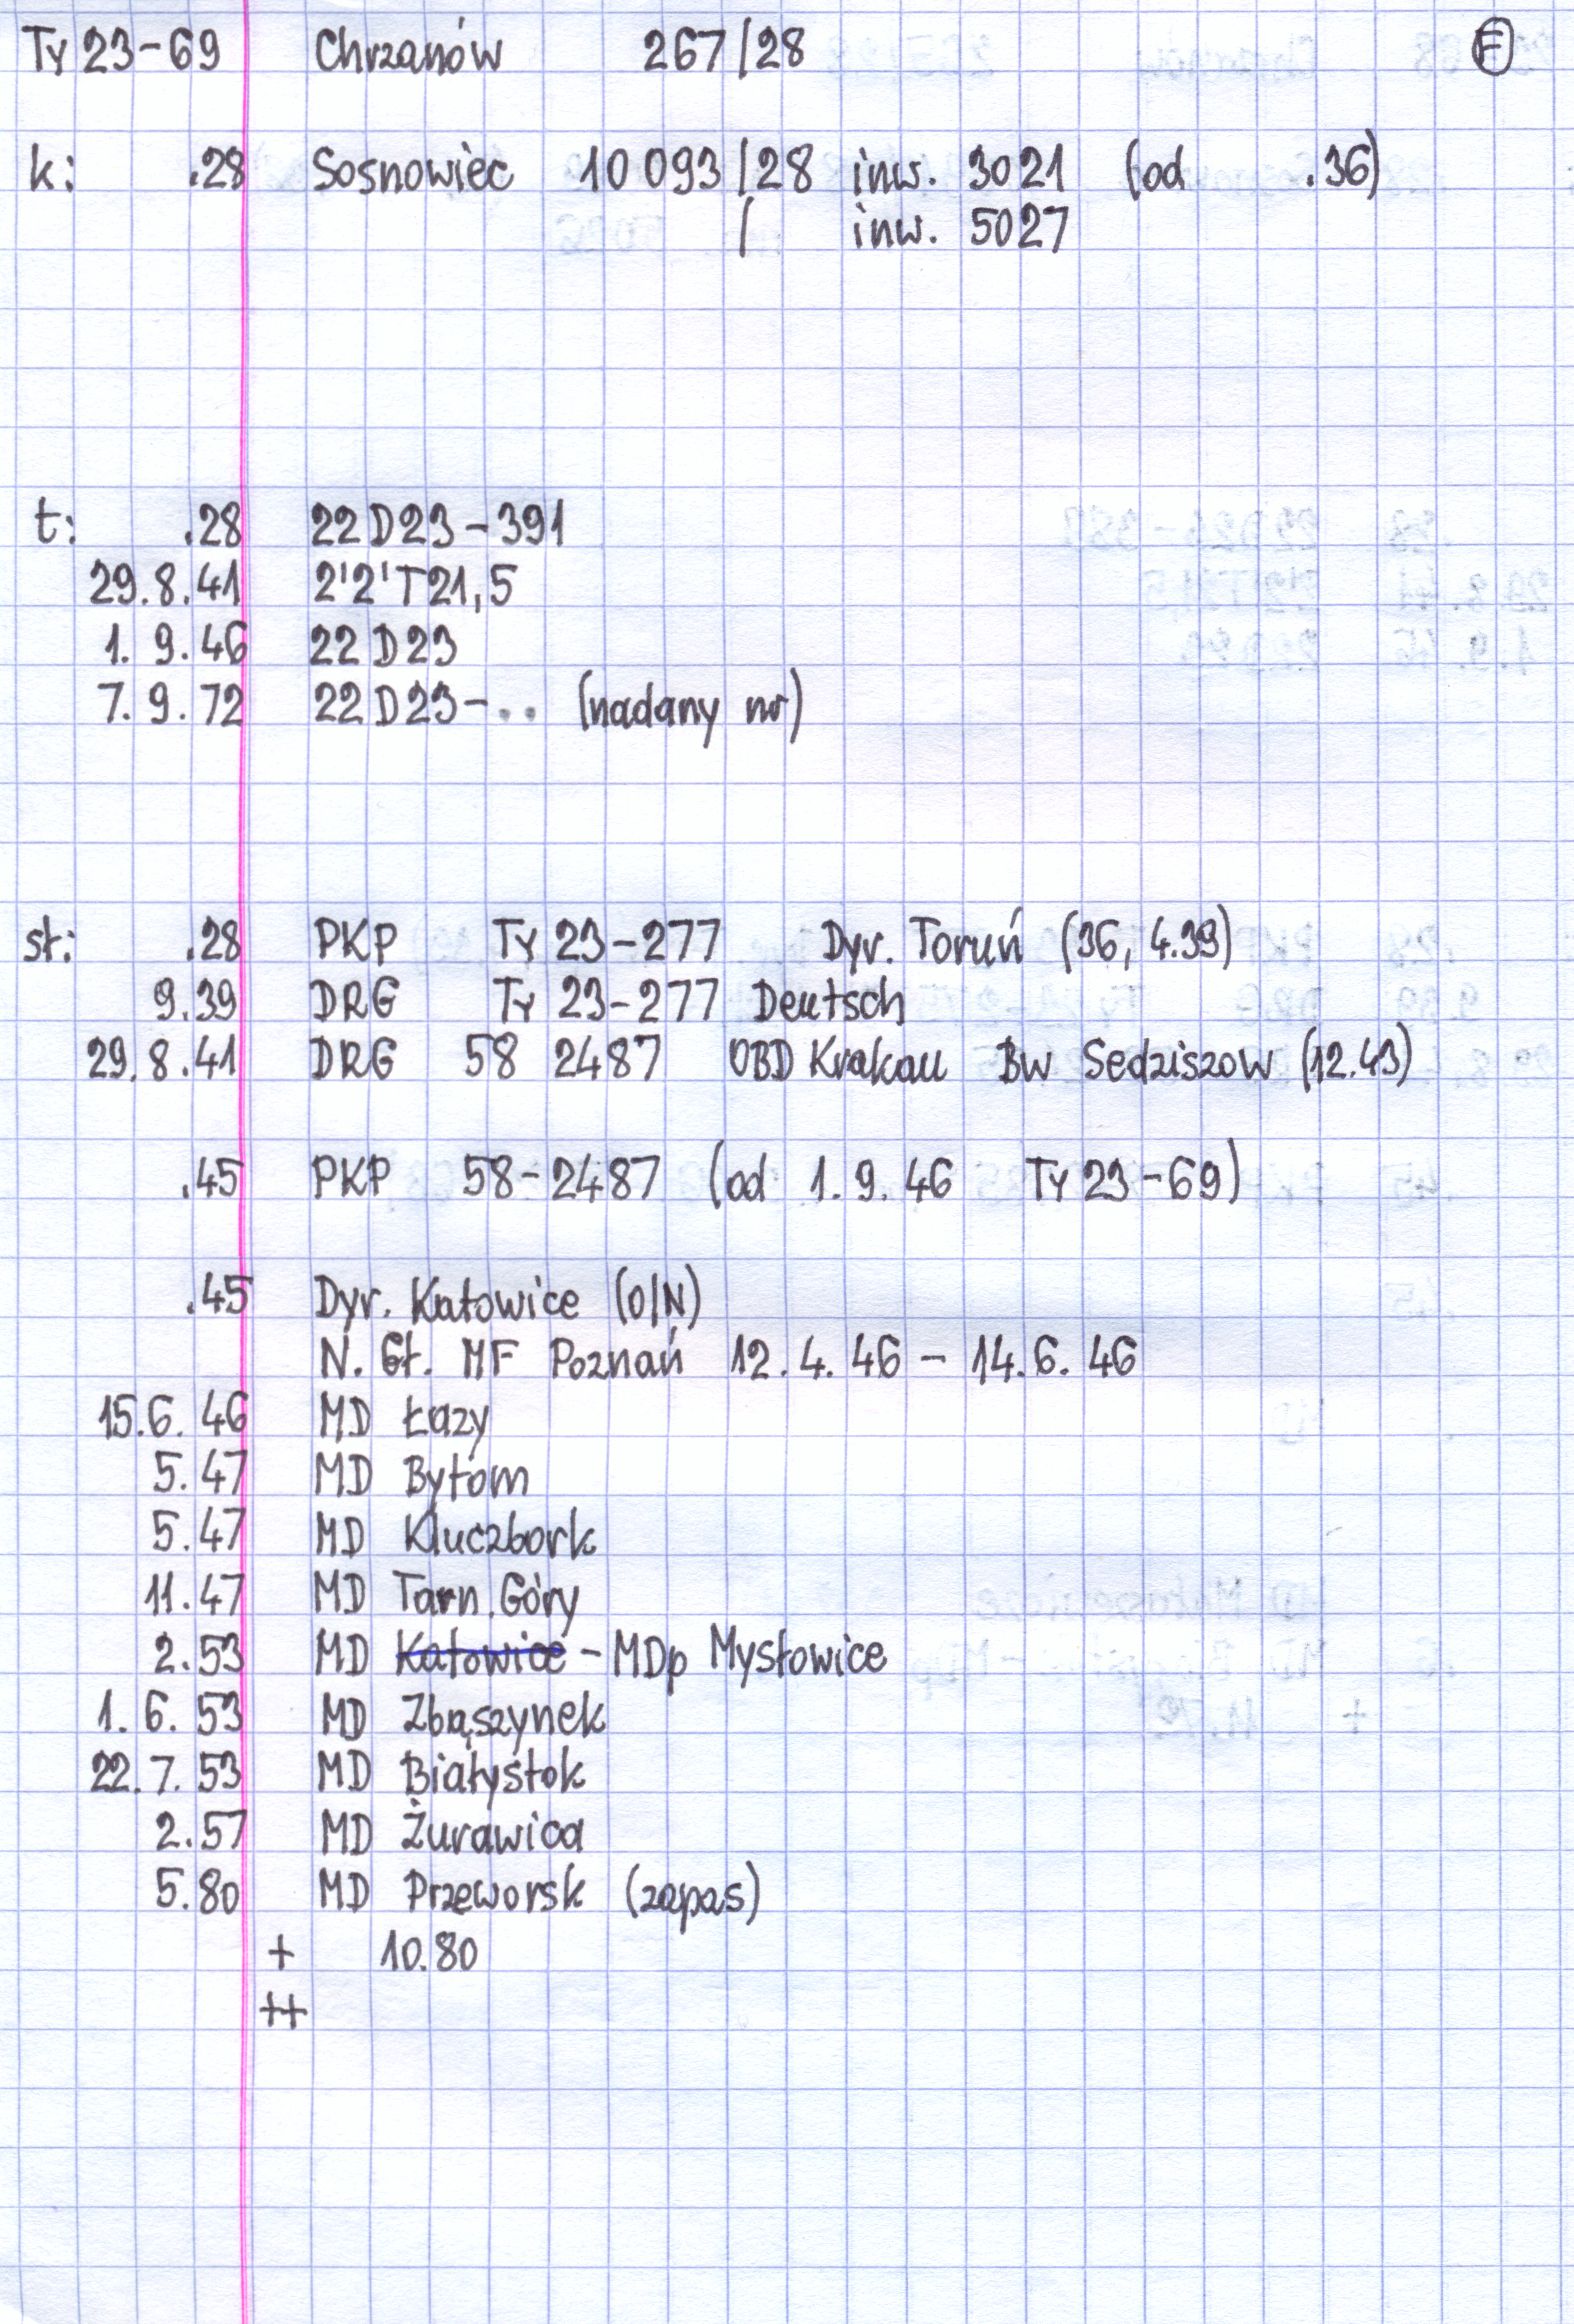 Ty 23-69 Chrzanów 267/28 F
k: .28 Sosnowiec 10 093/28 inw. 3021 (od .36)
/ inw. 5027
t: .28 22 D 23-391
29.8.41 2'2'T21,5
1.9.46 22 D 23
7.9.72 22 D 23-.. (nadany nr)
st: .28 PKP Ty 23-277 Dyr. Toruń (36, 4.39)
9.39 DRG Ty 23-277 Deutsch
29.8.41 DRG 58 2487 OBD Krakau Bw Sedziszow (12.43)
.45 PKP 58-2487 (od 1.9.46 Ty 23-69)
.45 Dyr. Katowice (O/N)
N. Gł. MF Poznań 12.4.46 - 14.6.46
15.6.46 MD Łazy
5.47 MD Bytom
5.47 MD Kluczbork
11.47 MD Tarn. Góry
2.53 MD Katowice - MDp Mysłowice
1.6.53 MD Zbąszynek
22.7.53 MD Białystok
2.57 MD Żurawica
5.80 MD Przeworsk (zapas)
+ 10.80
++